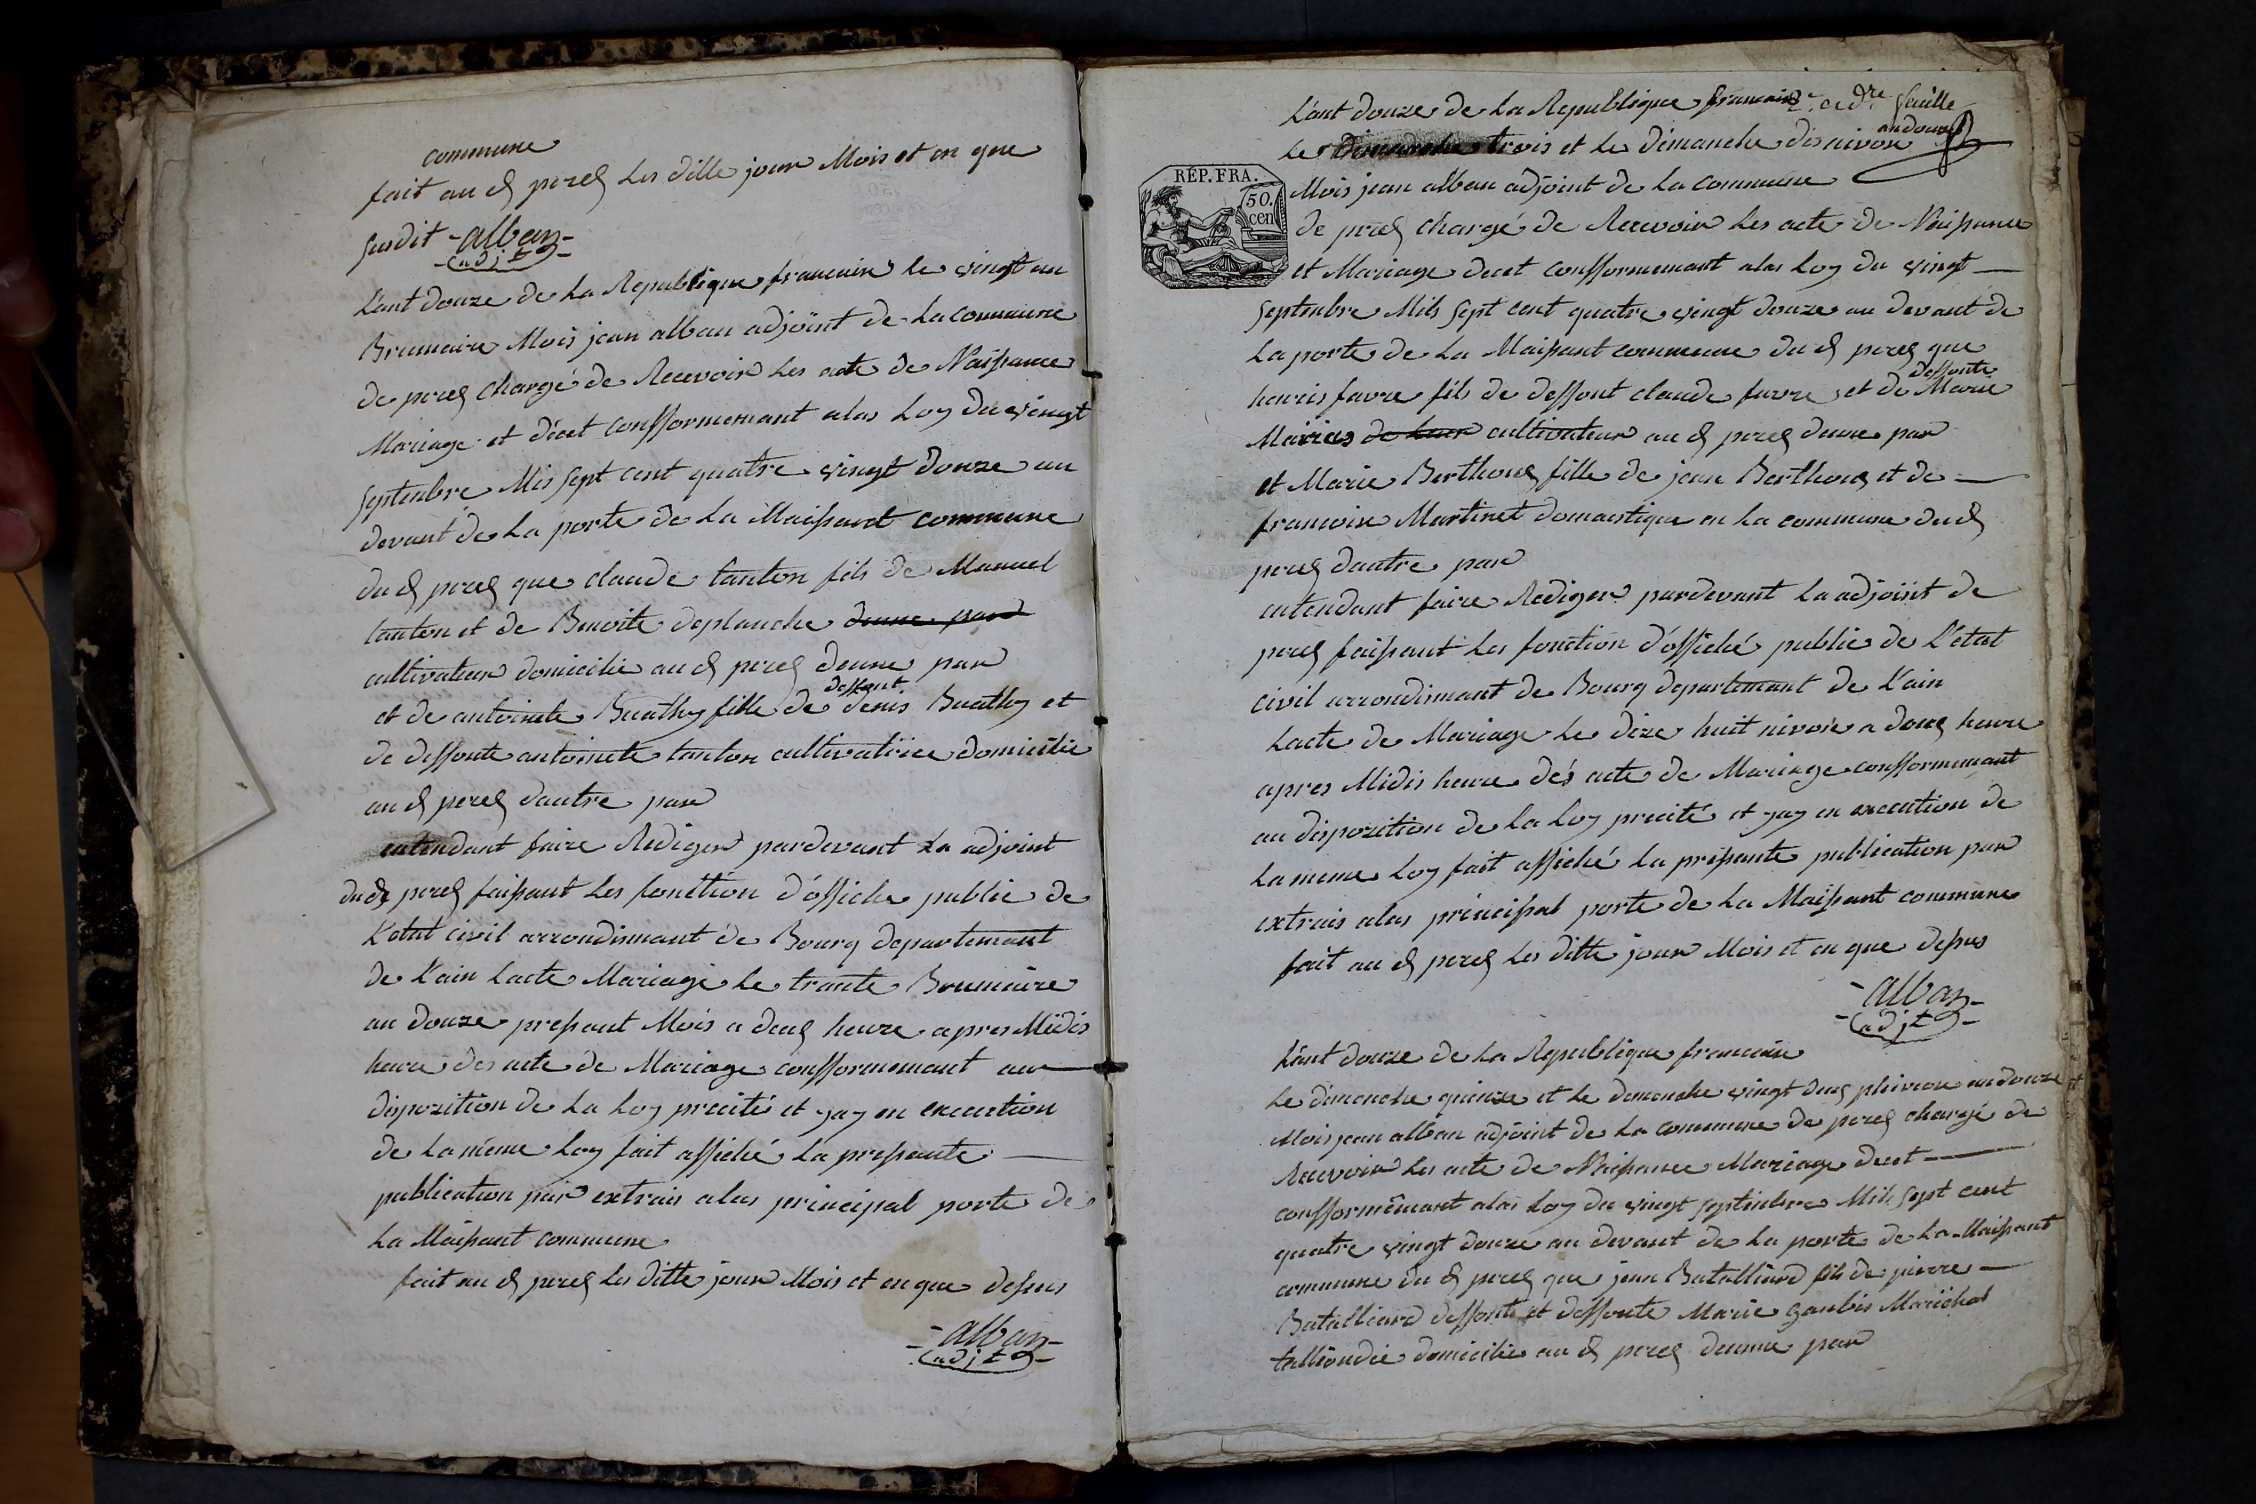 commune
fait au d perex les ditte jour Mois et en que
susdit - alban -
- (adjt) -
L'ant douze de La Republique francoise le vingt un
Brumaire Mois jean alban adjoint de La commune
de perex chargé de Recevoir Les acte de Naissance
Mariage et décet consformemant alas Loy du vingt
septenbre Mis sept cent quatre vingt douze au
devant de La porte de La Maissant commune
du d perex que claude tanton fils de Manuel
tanton et de Benoite deplanche deune part
cultivateur domicilie au d perex deune par
deffont
et de antoinete Buathy fille de denis Buathy et
de deffonte antoinete tanton cultivatrice domicilie
au d perex dautre par
entendant faire Rediger pardevant La adjoint
dud perex faissant Les fonction d'offiche public de
L'etat civil arrondimant de Bourg departemant
de L'ain Lacte Mariage Le trante Brumaire
an douze pressant Mois a deux heure apres Midis
heure des acte de Mariage consformemant au
dispozition de La Loy precité et jay en execution
de La méme Loy fait affiché La pressante
publication par extrais alas principal porte de
La Maissant commune
fait au d perex Les ditte jour Mois et en que dessus
- alban -
- (adjt) -
L'ant douze de La Republique francoise 2e. a dre feuille
an douze
Le Dimanche trois et Le dimanche dis nivose
RÉP. FRA.
50.
cen
Mois jean alban adjoint de La commune
de perex chargé de Recevoir Les acte de Naissance
et Mariage decet consformemant alas Loy du vingt
septenbre Mils sept cent quatre vingt douze au devant de
La porte de La Maissant commune du d perex que
deffonte
henris favre fils de deffont claude favre et de Marie
Mairas de leur cultivateur au d perex deune par
et Marie Berthoux fille de jean Berthoux et de
francoise Martinet domaestique en La commune du d
perex dautre par
entendant faire Rediger pardevant La adjoint de
perex faissant Les fonction d'offiché public de L'etat
civil arrondimant de Bourg departemant de L'ain
Lacte de Mariage Le dize huit nivose a deux heure
apres Midis heure dés acte de Mariage consformemant
au dispozition de La Loy precité et jay en execution de
La meme Loy fait affiché La pressante publication par
extrais alas principal porte de La Maissant commune
fait au d perex Les ditte jour Mois et en que dessus
- alban -
- (adjt) -
L'ant douze de La Republique francoise
Le dimenche quinze et Le demenche vingt deux pluviose an douze
Mois jean alban adjoint de La commune de perex chargé de
Recevoir Les acte de Naissance Mariage decet
consformémant alas Loy du vingt septenbre Mils sept cent
quatre vingt douze au devant de La porte de La Maissant
commune du d perex que jean Batalliard fils de pierre
Batalliard deffont et deffonte Marie gonbis Maréchal
talliondié domicilie au d perex deune par